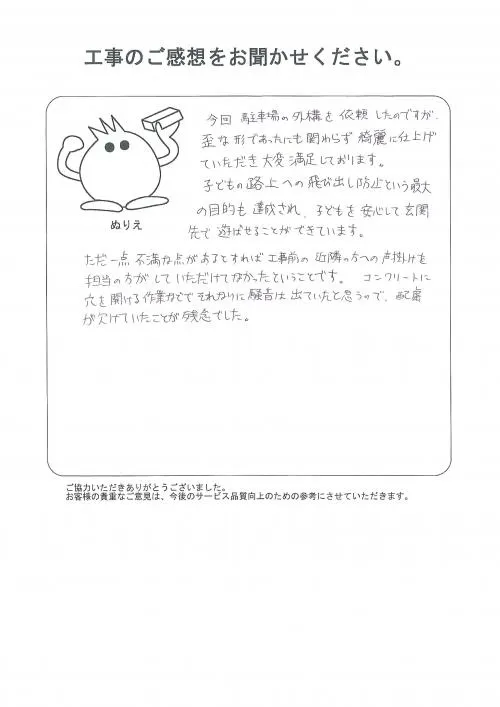 工事のご感想をお聞かせください。
今回 駐車場の外構を依頼したのですが、
歪な形であったにも関わらず綺麗に仕上げ
ていただき大変満足しております。
子どもの路上への飛び出し防止という最大
の目的も達成され、子どもを安心して玄関
先で遊ばせることができています。
ぬりえ
ただ一点 不満な点があるとすれば工事前の近隣の方への声掛けを
担当の方がしていただけてなかったということです。 コンクリートに
穴を開ける作業などでそれなりに騒音は出ていたと思うので、配慮
が欠けていたことが残念でした。
ご協力いただきありがとうございました。
お客様の貴重なご意見は、今後のサービス品質向上のための参考にさせていただきます。